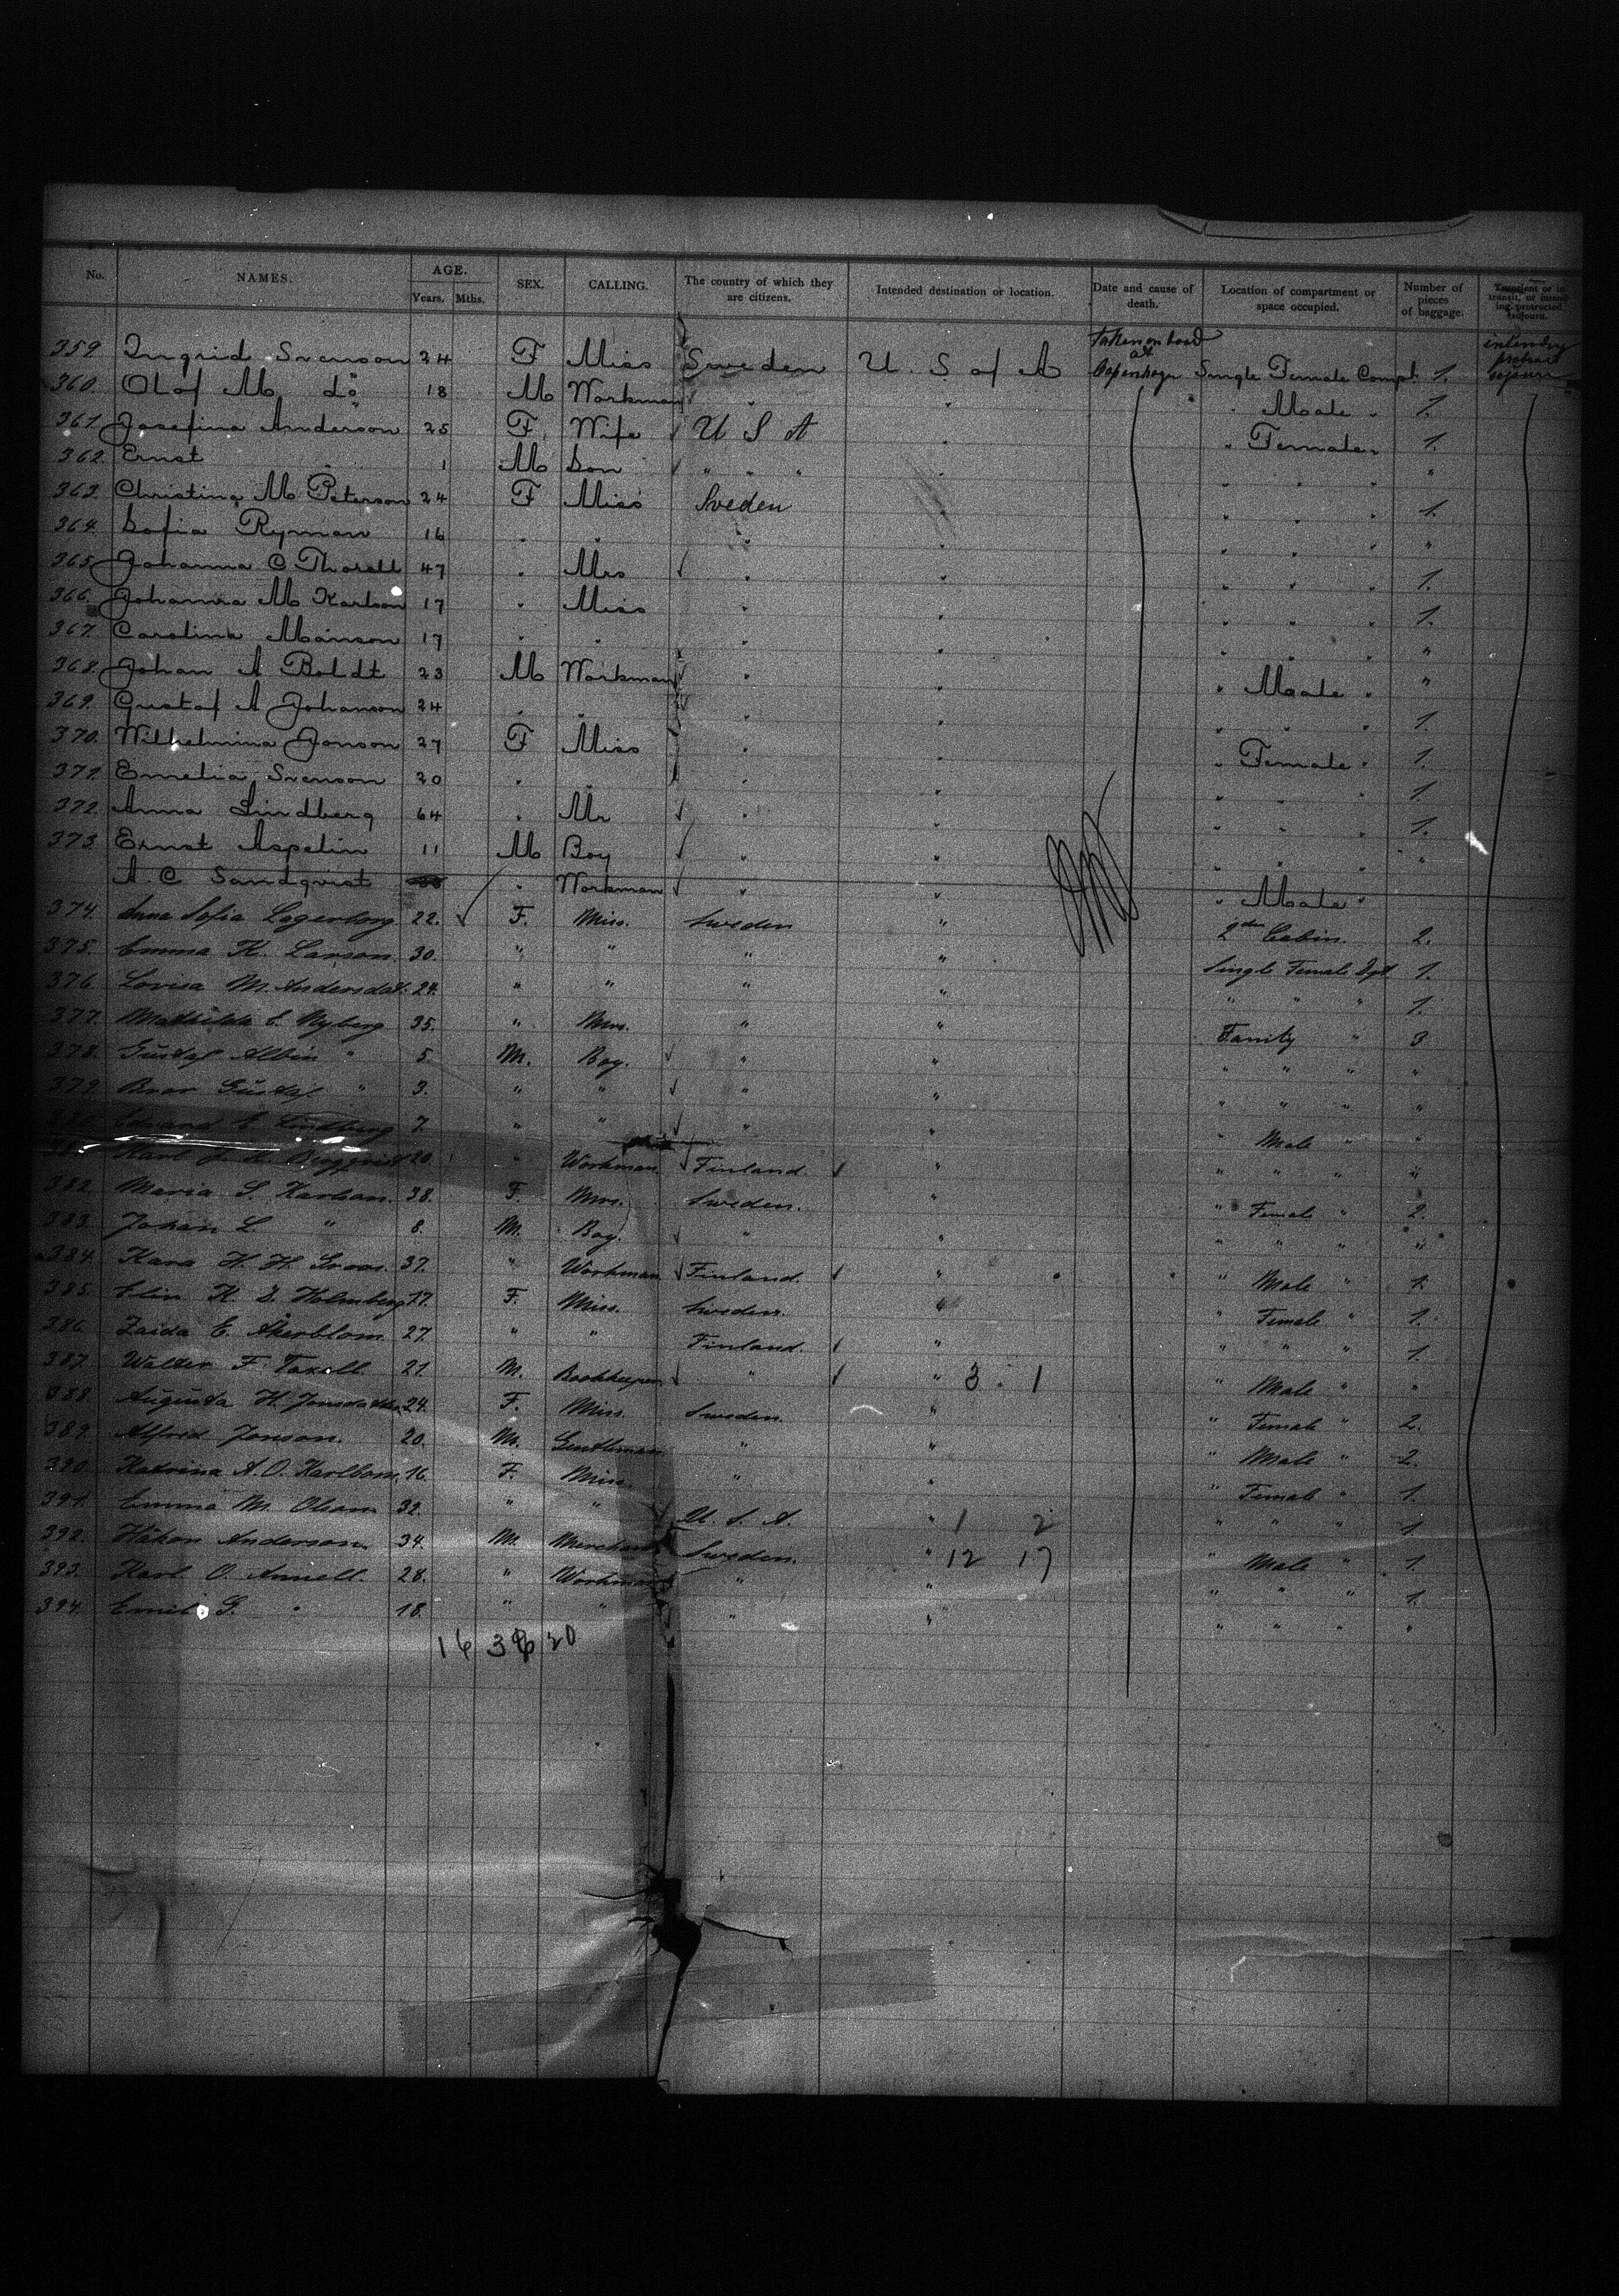 No. NAMES. AGE. Years. Mths. SEX. CALLING. The country of which they are citizens. Intended destination or location. Date and cause of death. Location of compartment or space occupied. Number of pieces of baggage. Transient or in transit, or intending protracted sojourn.
359 Ingrid Svenson 24 F Miss Sweden U. S of A Taken on board at Copenhagen Single Female Compt. 1.
360. Olof M do 18 M Workman " " " Male " 1.
361. Josefina Anderson 25 F Wife U S A " " Female " 1.
362. Ernst " 1 M Son " " " " " " " "
363. Christina M Peterson 24 F Miss Sweden " " " " 1.
364. Sofia Ryman 16 " " " " " " " "
365. Johanna C Thorell 47 " Mrs " " " " " 1.
366. Johanna M Karlson 17 " Miss " " " " " 1.
367. Carolina Mainson 17 " " " " " " " "
368. Johan A Boldt 23 M Workman " " " Male " "
369. Gustaf A Johanson 24 " " " " " " " 1.
370. Wilhelmina Jonson 27 F Miss " " " Female " 1.
371. Emelia Svenson 20 " " " " " " " 1.
372. Anna Lindberg 64 " Mr " " " " " 1.
373. Ernst Aspelin 11 M Boy " " " " " "
A. C Sandqvist " Workman " " " Male "
374. Anna Sofia Lagerborg 22. F. Miss. Sweden " 2nd Cabin. 2.
375. Emma K. Larson. 30. " " " " Single Female Dpt 1.
376. Lovisa M. Andersdot. 24. " " " " " " " 1.
377. Mathilda E. Nyberg 35. " Mrs. " " Family " 3
378. Gustaf Albin " 5. M. Boy. " " " " " "
379. Bror Gustaf " 3. " " " " " " " "
380. Edvard E Lindberg 7. " " " " " Male " "
Karl J. A. 20. " Workman. Finland. " " " " "
382. Maria S. Karlson. 38. F. Mrs. Sweden. " " Female " 2.
383. Johan L. " 8. M. Boy. " " " " " "
384. H. H. 37. " Workman Finland. " " Male " 1.
385. Elin K. S. Holmberg 17. F. Miss. Sweden. " " Female " 1.
386. Zaida E. Åkerblom. 27. " " Finland. " " " " 1.
387. Walter F. Taxell. 21. M. Bookkeeper " " 3 . 1 " Male " "
388. Augusta H. 24. F. Miss. Sweden. " " Female " 2.
389. Alfred Jonson. 20. M. Gentleman " " " Male " 2.
390. Katrina A. O. Karlbom. 16. F. Miss. " " " Female " 1.
391. Emma M. Olson 32. " " U. S. A. " 1 2 " " " 1
392. Håkan Anderson. 34. M. Merchant Sweden. " 12 17 " Male " 1.
393. Karl O. Annell. 28. " Workman " " " " " 1.
394. Emil G. " 18. " " " " " " " "